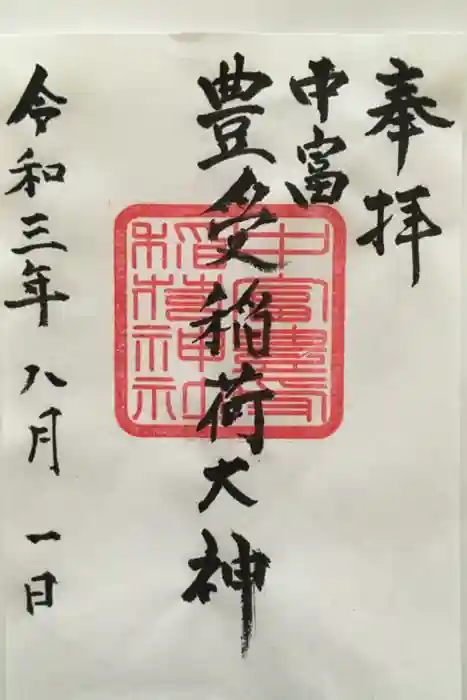 奉拝
中富
豊受稲荷大神
令和三年八月一日
中富豊受
稲荷神社